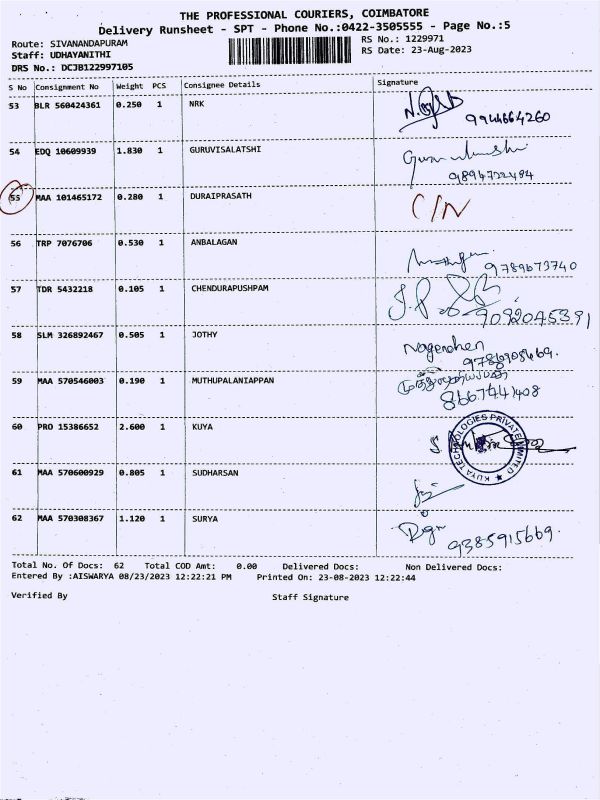 THE PROFESSIONAL COURIERS, COIMBATORE
Delivery Runsheet - SPT - Phone No.:0422-3505555 - Page No.:5
Route: SIVANANDAPURAM RS No.: 1229971
Staff: UDHAYANITHI RS Date: 23-Aug-2023
DRS No.: DCJB122997105
S No Consignment No Weight PCS Consignee Details Signature
53 BLR 560424361 0.250 1 NRK
9944664260
54 EDQ 10609939 1.830 1 GURUVISALATSHI
9894722494
55 MAA 101465172 0.280 1 DURAIPRASATH C/N
56 TRP 7076706 0.530 1 ANBALAGAN
9789673740
57 TDR 5432218 0.105 1 CHENDURAPUSHPAM
9092045391
58 SLM 326892467 0.505 1 JOTHY Nagendhen
9786905469.
59 MAA 570546003 0.190 1 MUTHUPALANIAPPAN
8667441408
60 PRO 15386652 2.600 1 KUYA
KUYA TECHNOLOGIES PRIVATE LIMITED
61 MAA 570600929 0.805 1 SUDHARSAN
62 MAA 570308367 1.120 1 SURYA
9385915669.
Total No. Of Docs: 62 Total COD Amt: 0.00 Delivered Docs: Non Delivered Docs:
Entered By :AISWARYA 08/23/2023 12:22:21 PM Printed On: 23-08-2023 12:22:44
Verified By Staff Signature